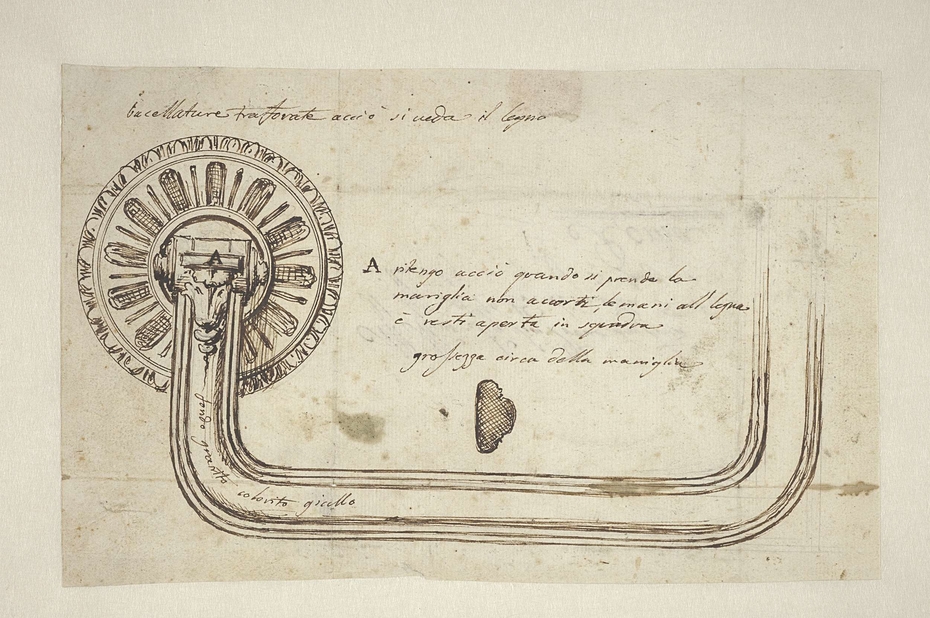 bacellature traforate acciò si veda il legno
A
A ritengo acciò quando si prende la
maniglia non accosti, le mani all legno
è resti aperta in squadra
grossezza circa della maniglia
fondo granito
colorito giallo